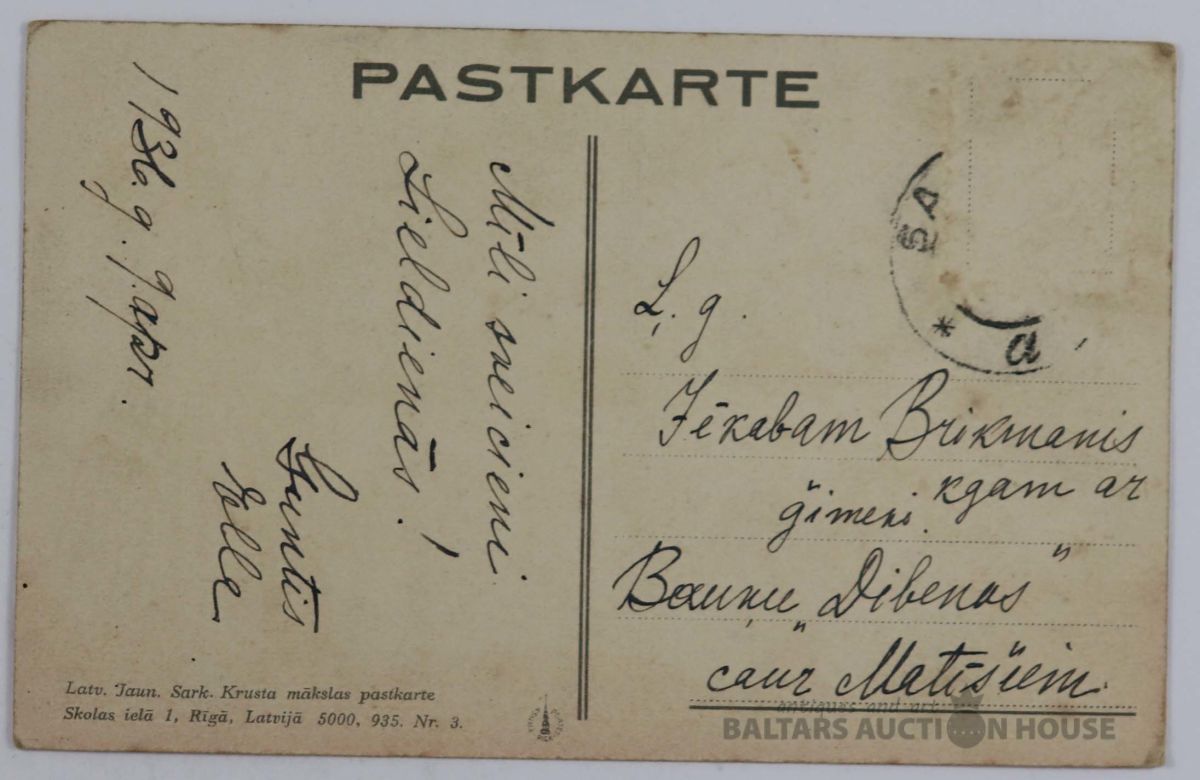 PASTKARTE
Mīļi sveicieni
Lieldienās!
Guntis
Elle
1936. g. 9. apr.
Ļ. g.
Jēkabam Brikmanis
kgam ar
ģimeni.
Bauņu „Dibenas"
caur Matīšiem
Latv. Jaun. Sark. Krusta mākslas pastkarte
Skolas ielā 1, Rīgā, Latvijā 5000, 935. Nr. 3.
SA
* a
antiques and art
BALTARS AUCTION HOUSE